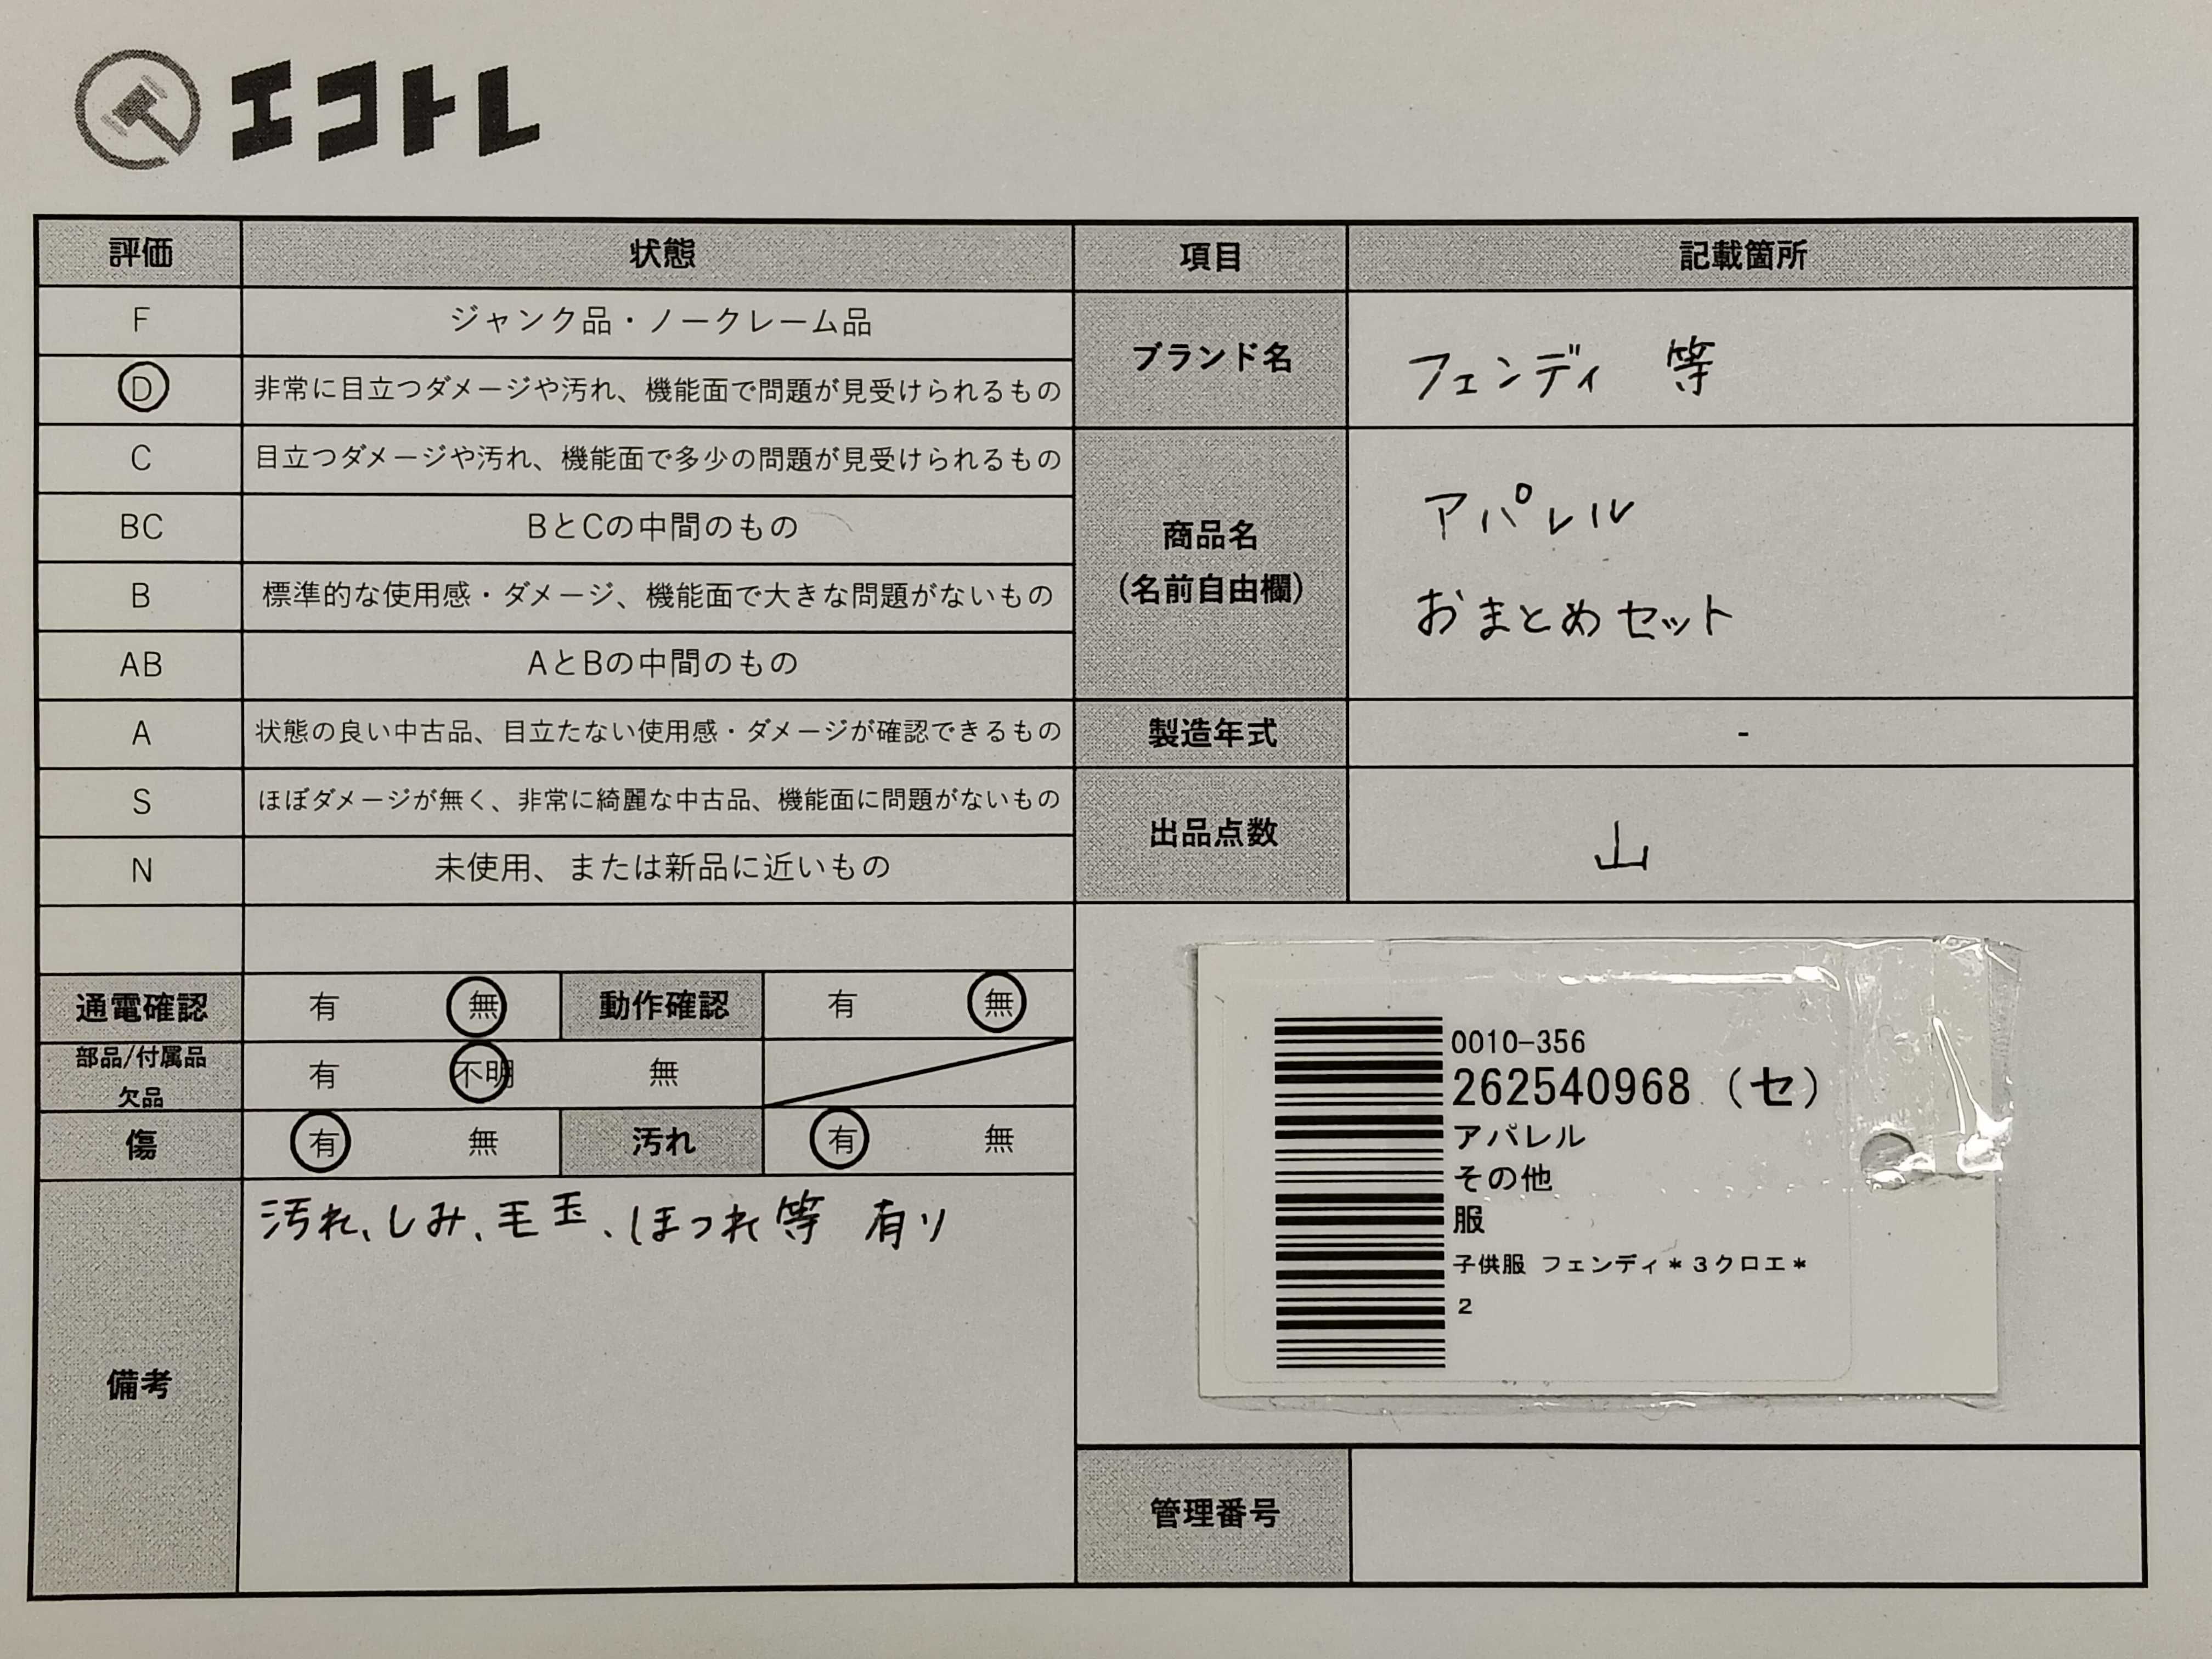 エコトレ
評価 状態 項目 記載箇所
F ジャンク品・ノークレーム品
D 非常に目立つダメージや汚れ、機能面で問題が見受けられるもの
C 目立つダメージや汚れ、機能面で多少の問題が見受けられるもの
BC BとCの中間のもの
B 標準的な使用感・ダメージ、機能面で大きな問題がないもの
AB AとBの中間のもの
A 状態の良い中古品、目立たない使用感・ダメージが確認できるもの
S ほぼダメージが無く、非常に綺麗な中古品、機能面に問題がないもの
N 未使用、または新品に近いもの
ブランド名 フェンディ 等
商品名
(名前自由欄)
アパレル
おまとめセット
製造年式 -
出品点数 山
通電確認 有 無 動作確認 有 無
部品/付属品
欠品
有 不明 無
傷 有 無 汚れ 有 無
備考
汚れ、しみ、毛玉、ほつれ等 有り
0010-356
262540968 (セ)
アパレル
その他
服
子供服 フェンディ*3クロエ*
2
管理番号